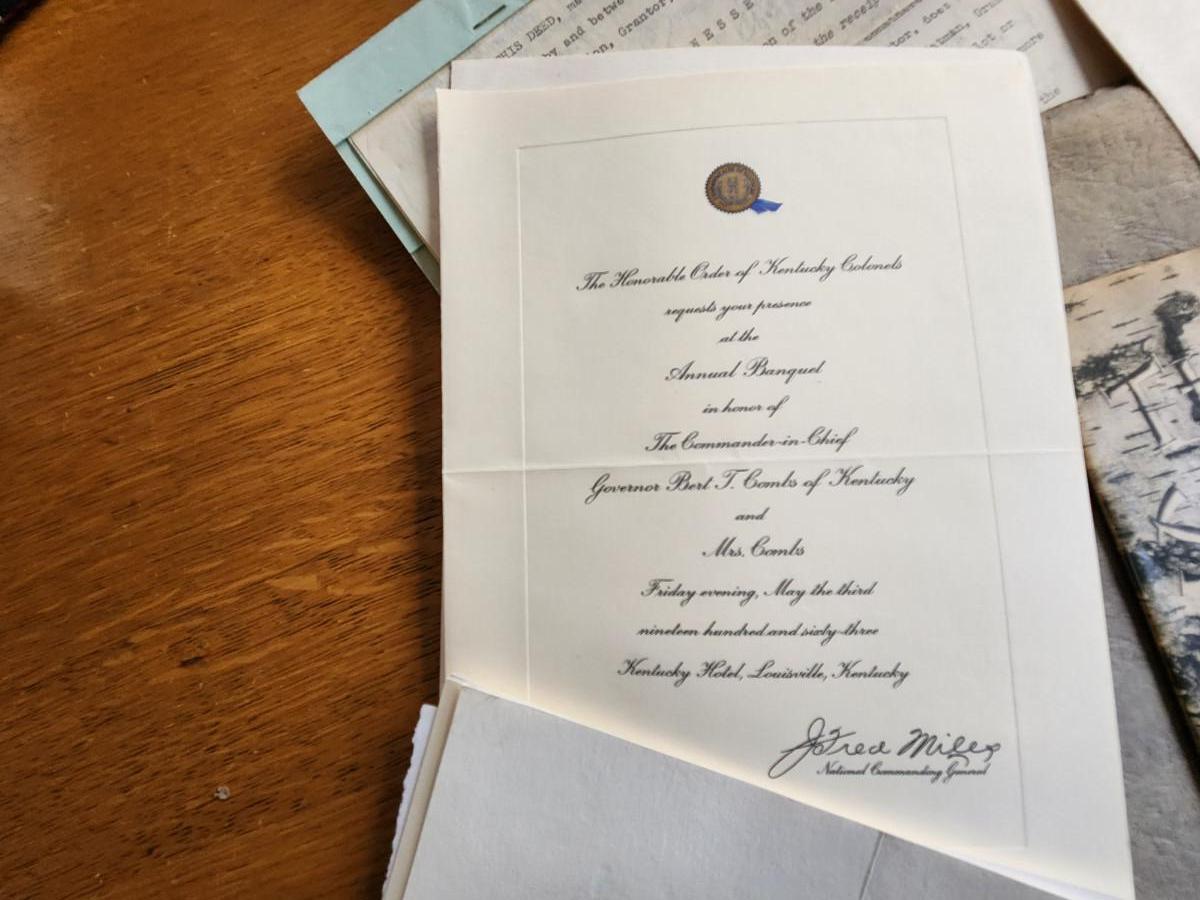 THIS DEED,
by and between
Grantor,
NESSE
of the
the receipt
Does
lot or
the
The Honorable Order of Kentucky Colonels
requests your presence
at the
Annual Banquet
in honor of
The Commander-in-Chief
Governor Bert T. Combs of Kentucky
and
Mrs. Combs
Friday evening, May the third
nineteen hundred and sixty-three
Kentucky Hotel, Louisville, Kentucky
J Fred Miles
National Commanding General